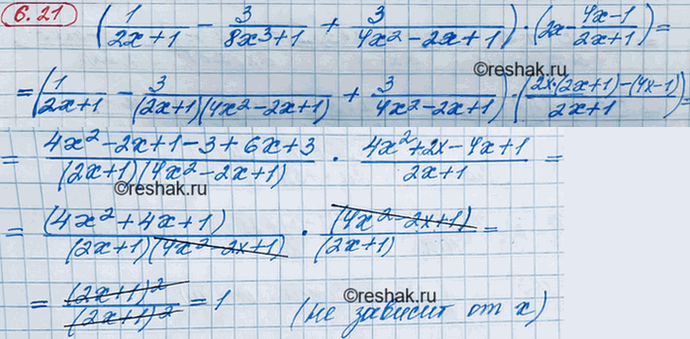 6.21 (1/(2x+1) - 3/(8x³+1) + 3/(4x²-2x+1)) · (2x - (4x-1)/(2x+1)) =
©reshak.ru
= (1/(2x+1) - 3/((2x+1)(4x²-2x+1)) + 3/(4x²-2x+1)) · ((2x·(2x+1)-(4x-1))/(2x+1)) =
= (4x²-2x+1-3+6x+3)/((2x+1)(4x²-2x+1)) · (4x²+2x-4x+1)/(2x+1) =
©reshak.ru
= (4x²+4x+1)/((2x+1)(4x²-2x+1)) · (4x²-2x+1)/(2x+1) =
= (2x+1)²/(2x+1)² = 1 (не зависит от x)
©reshak.ru